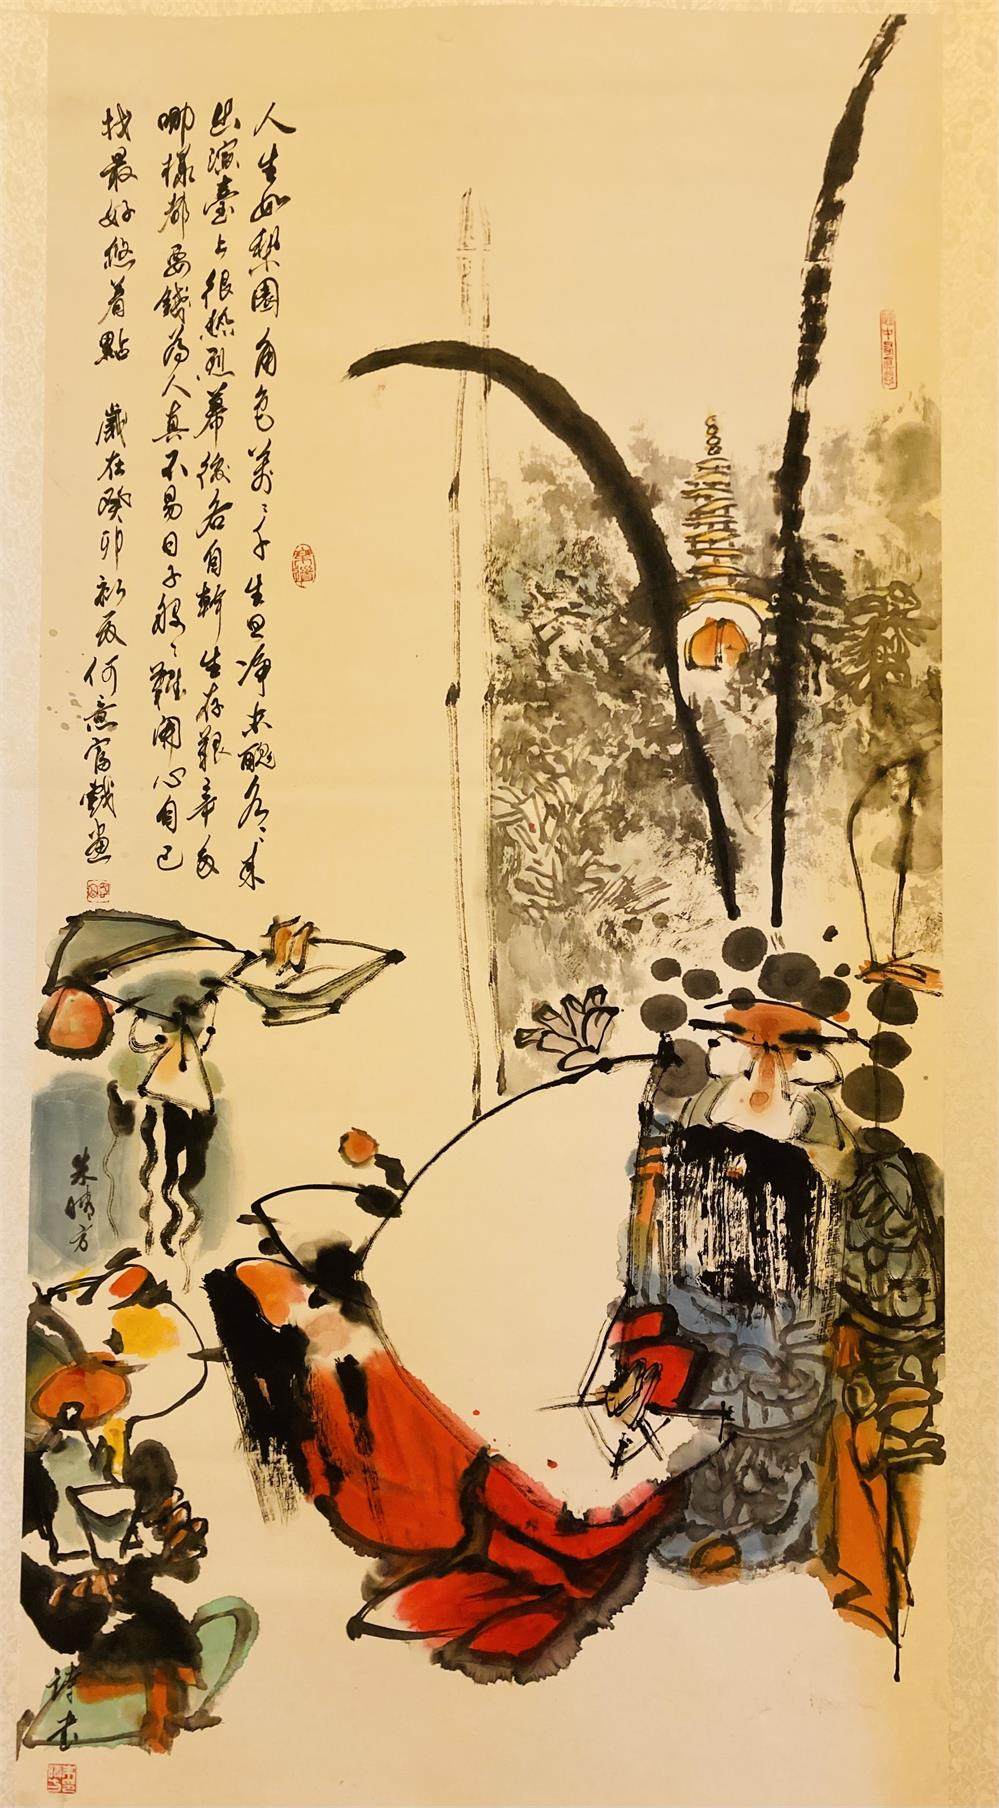 人生如梨園角色萬〻千生旦净末醜各〻來
出演臺上很熱烈幕後各自斬生存艱辛友
哪樣都要錢為人真不易日子般〻難開心自己
找最好悠着點 歲在癸卯初夏何意富戲畫
朱晴方
詩書